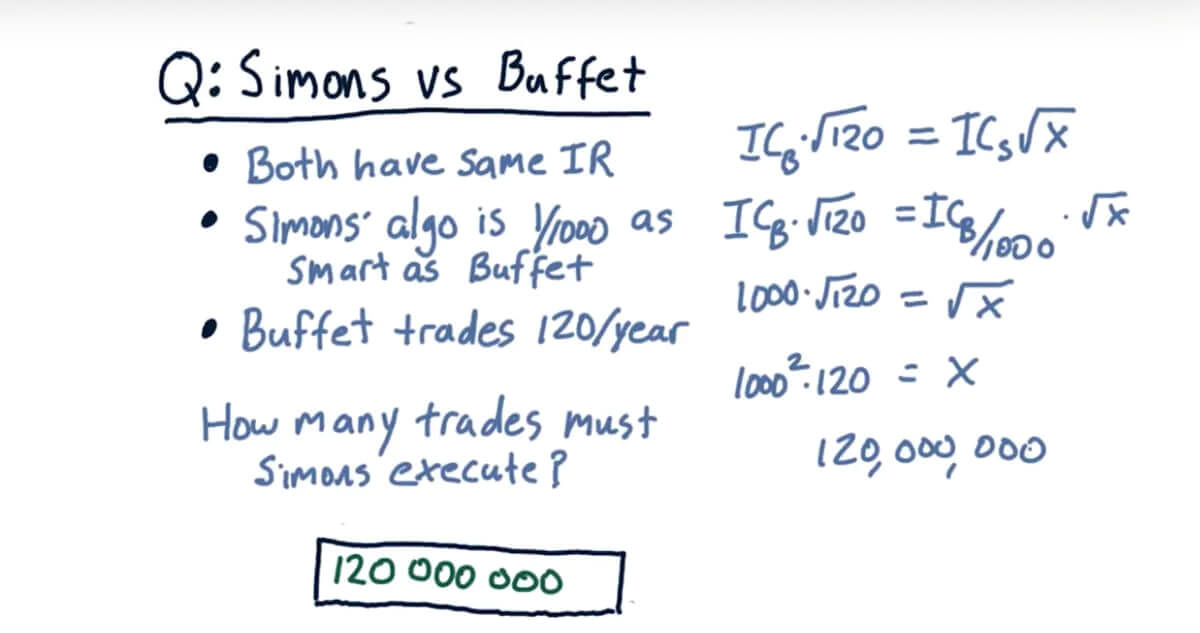 Q: Simons vs Buffet
• Both have same IR
• Simons' algo is 1/1000 as
smart as Buffet
• Buffet trades 120/year
How many trades must
Simons execute?
120 000 000
IC_B·√120 = IC_S√x
IC_B·√120 = IC_B/1000 ·√x
1000·√120 = √x
1000²·120 = x
120,000,000